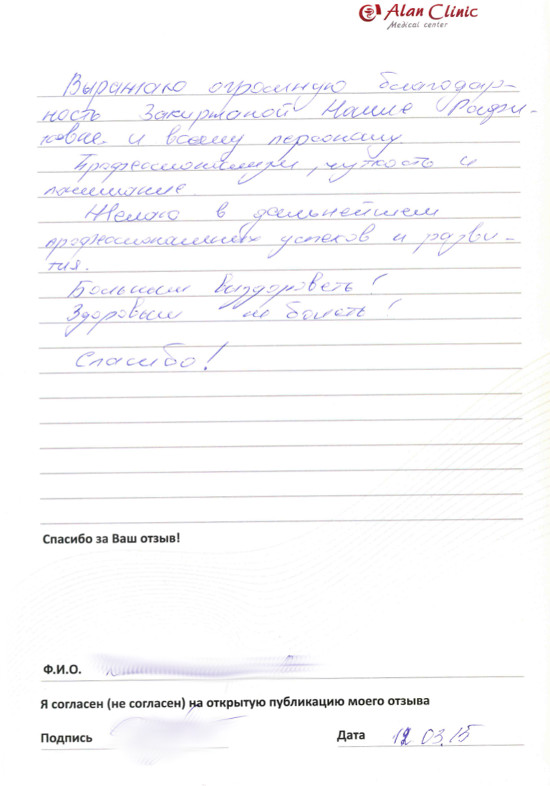 Alan Clinic
Medical center
Выражаю огромную благодар-
ность Закиржаной Наиле Рафи-
ковне и всему персоналу.
Профессионализм, чуткость и
понимание.
Желаю в дальнейшем
профессиональных успехов и разви-
тия.
Больным выздороветь!
Здоровым не болеть!
Спасибо!
Спасибо за Ваш отзыв!
Ф.И.О.
Я согласен (не согласен) на открытую публикацию моего отзыва
Подпись
Дата 12.03.15